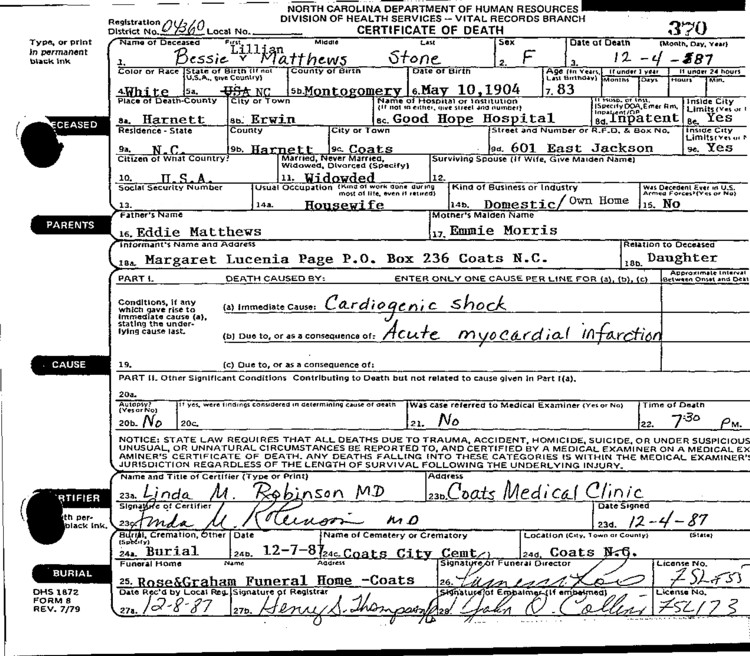 NORTH CAROLINA DEPARTMENT OF HUMAN RESOURCES
DIVISION OF HEALTH SERVICES -- VITAL RECORDS BRANCH
CERTIFICATE OF DEATH
370
Registration District No. 04360 Local No.
Type, or print in permanent black ink
Name of Deceased First Middle Last Sex Date of Death (Month, Day, Year)
1. Bessie v Lillian Matthews Stone 2. F 3. 12-4-87
Color or Race State of Birth (If not U.S.A., give Country) County of Birth Date of Birth Age (In Years, Last Birthday) If under 1 year Months Days If under 24 hours Hours Min.
4. White 5a. USA NC 5b. Montogomery 6. May 10, 1904 7. 83
Place of Death-County City or Town Name of Hospital or Institution (If not in either, give street and number) If Hosp. or Inst. (Specify DOA, Emer Rm, Inpatient/OP Inside City Limits (Yes or
8a. Harnett 8b. Erwin 8c. Good Hope Hospital 8d. Inpatent 8e. Yes
ECEASED
Residence - State County City or Town Street and Number or R.F.D. & Box No. Inside City Limits (Yes or
9a. N.C. 9b. Harnett 9c. Coats 9d. 601 East Jackson 9e. Yes
Citizen of What Country? Married, Never Married, Widowed, Divorced (Specify) Surviving Spouse (If Wife, Give Maiden Name)
10. U.S.A. 11. Widowded 12.
Social Security Number Usual Occupation (Kind of work done during most of life, even if retired) Kind of Business or Industry Was Decedent Ever in U.S. Armed Forces? (Yes or No)
13. 14a. Housewife 14b. Domestic/ Own Home 15. No
PARENTS
Father's Name Mother's Maiden Name
16. Eddie Matthews 17. Emmie Morris
Informant's Name and Address Relation to Deceased
18a. Margaret Lucenia Page P.O. Box 236 Coats N.C. 18b. Daughter
PART I. DEATH CAUSED BY: ENTER ONLY ONE CAUSE PER LINE FOR (a), (b), (c) Approximate Interval Between Onset and
Conditions, if any which gave rise to immediate cause (a), stating the underlying cause last.
(a) Immediate Cause: Cardiogenic shock
(b) Due to, or as a consequence of: Acute myocardial infarction
CAUSE
19. (c) Due to, or as a consequence of:
PART II. Other Significant Conditions Contributing to Death but not related to cause given in Part I(a).
20a.
Autopsy? (Yes or No) If yes, were findings considered in determining cause of death Was case referred to Medical Examiner (Yes or No) Time of Death
20b. No 20c. 21. No 22. 7:30 PM.
NOTICE: STATE LAW REQUIRES THAT ALL DEATHS DUE TO TRAUMA, ACCIDENT, HOMICIDE, SUICIDE, OR UNDER SUSPICIOUS
UNUSUAL, OR UNNATURAL CIRCUMSTANCES BE REPORTED TO, AND CERTIFIED BY A MEDICAL EXAMINER ON A MEDICAL EX
AMINER'S CERTIFICATE OF DEATH. ANY DEATHS FALLING INTO THESE CATEGORIES IS WITHIN THE MEDICAL EXAMINER'S
JURISDICTION REGARDLESS OF THE LENGTH OF SURVIVAL FOLLOWING THE UNDERLYING INJURY.
Name and Title of Certifier (Type or Print) Address
23a. Linda M. Robinson MD 23b. Coats Medical Clinic
RTIFIER
Signature of Certifier Date Signed
black ink. Linda M. Robinson MD 23d. 12-4-87
Burial, Cremation, Other (Specify) Date Name of Cemetery or Crematory Location (City, Town or County) (State)
24a. Burial 24b. 12-7-87 24c. Coats City Cemt. 24d. Coats N.C.
BURIAL
Funeral Home Name Address Signature of Funeral Director License No.
25. Rose&Graham Funeral Home -Coats 26.
DHS 1872
FORM 8
REV. 7/79
Date Rec'd by Local Reg. Signature of Registrar Signature of Embalmer (If embalmed) License No.
27a. 12-8-87 27b. Henry S. Thompson 28. John O. Collins FSL 173